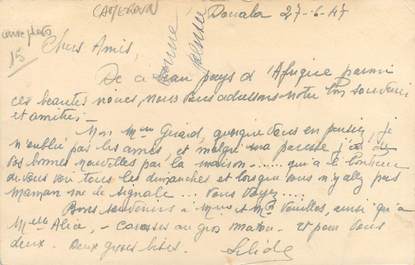 CAMEROUN
Douala 27-6-47
15
Chers Amis,
De ce beau pays d'Afrique parmi
ces beautés noires, nous vous adressons notre bon souvenir
et amitiés.
Mon Gérard, quoique dans en pensées, je
n'oublie pas les amis, et malgré ma paresse j'ai eu
vos bonnes nouvelles par la maison..... qui a le bonheur
de vous voir tous les dimanches et lorsque vous n'y allez pas
Maman me le signale... Vous voyez....
Bons souvenirs à Mme et Mr Vouilles, ainsi qu'à
Melle Alice, - Caresses au gros matou. et pour vous
deux. Deux grosses bises.